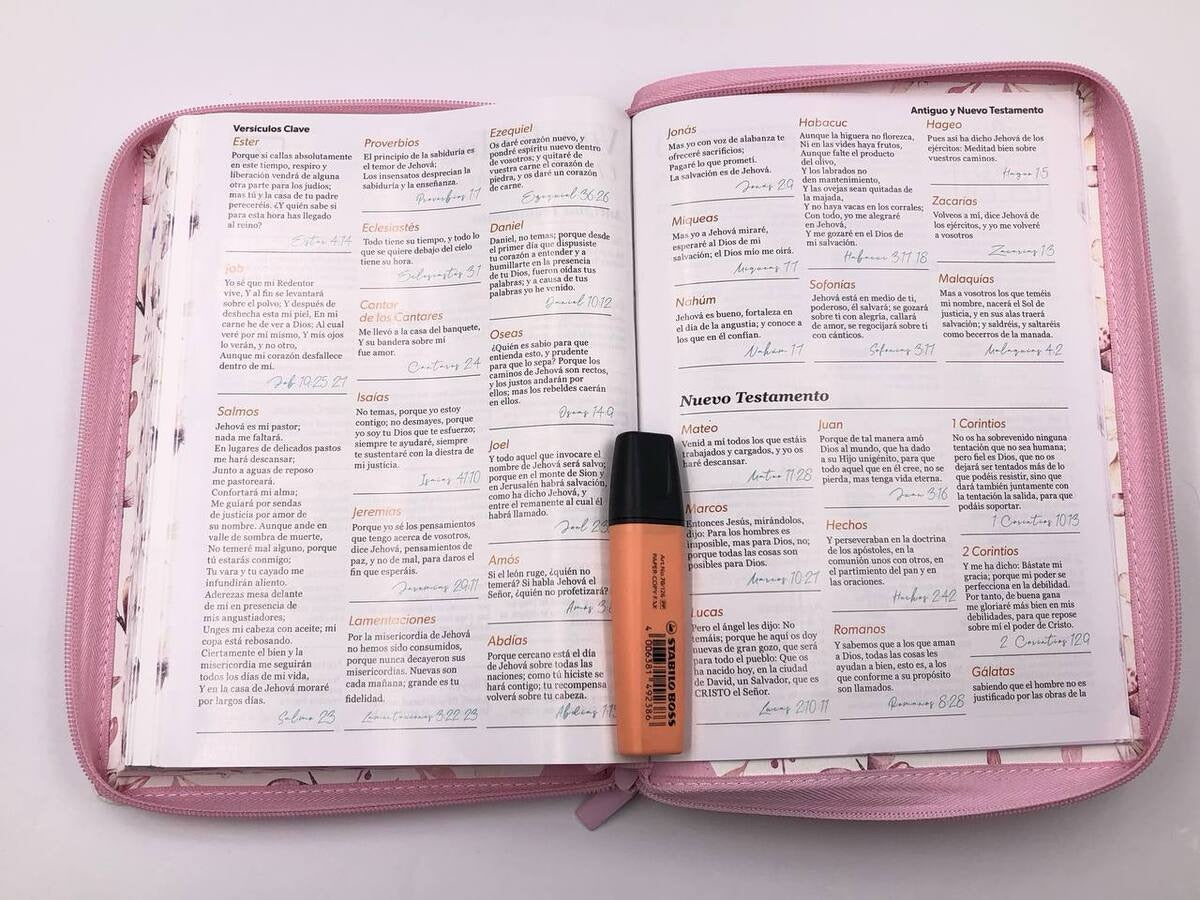 Versículos Clave
Ester
Porque si callas absolutamente
en este tiempo, respiro y
liberación vendrá de alguna
otra parte para los judíos;
mas tú y la casa de tu padre
pereceréis. ¿Y quién sabe si
para esta hora has llegado
al reino?
Ester 4:14
Job
Yo sé que mi Redentor
vive, Y al fin se levantará
sobre el polvo; Y después de
deshecha esta mi piel, En mi
carne he de ver a Dios; Al cual
veré por mí mismo, Y mis ojos
lo verán, y no otro,
Aunque mi corazón desfallece
dentro de mí.
Job 19:25, 27
Salmos
Jehová es mi pastor;
nada me faltará.
En lugares de delicados pastos
me hará descansar;
Junto a aguas de reposo
me pastoreará.
Confortará mi alma;
Me guiará por sendas
de justicia por amor de
su nombre. Aunque ande en
valle de sombra de muerte,
No temeré mal alguno, porque
tú estarás conmigo;
Tu vara y tu cayado me
infundirán aliento.
Aderezas mesa delante
de mí en presencia de
mis angustiadores;
Unges mi cabeza con aceite; mi
copa está rebosando.
Ciertamente el bien y la
misericordia me seguirán
todos los días de mi vida,
Y en la casa de Jehová moraré
por largos días.
Salmo 23
Proverbios
El principio de la sabiduría es
el temor de Jehová;
Los insensatos desprecian la
sabiduría y la enseñanza.
Proverbios 1:7
Eclesiastés
Todo tiene su tiempo, y todo lo
que se quiere debajo del cielo
tiene su hora.
Eclesiastés 3:1
Cantar
de los Cantares
Me llevó a la casa del banquete,
Y su bandera sobre mí
fue amor.
Cantares 2:4
Isaías
No temas, porque yo estoy
contigo; no desmayes, porque
yo soy tu Dios que te esfuerzo;
siempre te ayudaré, siempre
te sustentaré con la diestra de
mi justicia.
Isaías 41:10
Jeremías
Porque yo sé los pensamientos
que tengo acerca de vosotros,
dice Jehová, pensamientos de
paz, y no de mal, para daros el
fin que esperáis.
Jeremías 29:11
Lamentaciones
Por la misericordia de Jehová
no hemos sido consumidos,
porque nunca decayeron sus
misericordias. Nuevas son
cada mañana; grande es tu
fidelidad.
Lamentaciones 3:22, 23
Ezequiel
Os daré corazón nuevo, y
pondré espíritu nuevo dentro
de vosotros; y quitaré de
vuestra carne el corazón de
piedra, y os daré un corazón
de carne.
Ezequiel 36:26
Daniel
Daniel, no temas; porque desde
el primer día que dispusiste
tu corazón a entender y a
humillarte en la presencia
de tu Dios, fueron oídas tus
palabras; y a causa de tus
palabras yo he venido.
Daniel 10:12
Oseas
¿Quién es sabio para que
entienda esto, y prudente
para que lo sepa? Porque los
caminos de Jehová son rectos,
y los justos andarán por
ellos; mas los rebeldes caerán
en ellos.
Oseas 14:9
Joel
Y todo aquel que invocare el
nombre de Jehová será salvo;
porque en el monte de Sion y
en Jerusalén habrá salvación,
como ha dicho Jehová, y
entre el remanente al cual él
habrá llamado.
Joel
Amós
Si el león ruge, ¿quién no
temerá? Si habla Jehová el
Señor, ¿quién no profetizará?
Amós
Abdías
Porque cercano está el día
de Jehová sobre todas las
naciones; como tú hiciste se
hará contigo; tu recompensa
volverá sobre tu cabeza.
Abdías
Antiguo y Nuevo Testamento
Jonás
Mas yo con voz de alabanza te
ofreceré sacrificios;
Pagaré lo que prometí.
La salvación es de Jehová.
Jonás 2:9
Miqueas
Mas yo a Jehová miraré,
esperaré al Dios de mi
salvación; el Dios mío me oirá.
Miqueas 7:7
Nahúm
Jehová es bueno, fortaleza en
el día de la angustia; y conoce a
los que en él confían.
Nahúm 1:7
Habacuc
Aunque la higuera no florezca,
Ni en las vides haya frutos,
Aunque falte el producto
del olivo,
Y los labrados no
den mantenimiento,
Y las ovejas sean quitadas de
la majada,
Y no haya vacas en los corrales;
Con todo, yo me alegraré
en Jehová,
Y me gozaré en el Dios de
mi salvación.
Habacuc 3:17, 18
Sofonías
Jehová está en medio de ti,
poderoso, él salvará; se gozará
sobre ti con alegría, callará
de amor, se regocijará sobre ti
con cánticos.
Sofonías 3:17
Hageo
Pues así ha dicho Jehová de los
ejércitos: Meditad bien sobre
vuestros caminos.
Hageo 1:5
Zacarías
Volveos a mí, dice Jehová de
los ejércitos, y yo me volveré
a vosotros
Zacarías 1:3
Malaquías
Mas a vosotros los que teméis
mi nombre, nacerá el Sol de
justicia, y en sus alas traerá
salvación; y saldréis, y saltaréis
como becerros de la manada.
Malaquías 4:2
Nuevo Testamento
Mateo
Venid a mí todos los que estáis
trabajados y cargados, y yo os
haré descansar.
Mateo 11:28
Marcos
Entonces Jesús, mirándolos,
dijo: Para los hombres es
imposible, mas para Dios, no;
porque todas las cosas son
posibles para Dios.
Marcos 10:27
Lucas
Pero el ángel les dijo: No
temáis; porque he aquí os doy
nuevas de gran gozo, que será
para todo el pueblo: Que os
ha nacido hoy, en la ciudad
de David, un Salvador, que es
CRISTO el Señor.
Lucas 2:10-11
Juan
Porque de tal manera amó
Dios al mundo, que ha dado
a su Hijo unigénito, para que
todo aquel que en él cree, no se
pierda, mas tenga vida eterna.
Juan 3:16
Hechos
Y perseveraban en la doctrina
de los apóstoles, en la
comunión unos con otros, en
el partimiento del pan y en
las oraciones.
Hechos 2:42
Romanos
Y sabemos que a los que aman
a Dios, todas las cosas les
ayudan a bien, esto es, a los
que conforme a su propósito
son llamados.
Romanos 8:28
1 Corintios
No os ha sobrevenido ninguna
tentación que no sea humana;
pero fiel es Dios, que no os
dejará ser tentados más de lo
que podéis resistir, sino que
dará también juntamente con
la tentación la salida, para que
podáis soportar.
1 Corintios 10:13
2 Corintios
Y me ha dicho: Bástate mi
gracia; porque mi poder se
perfecciona en la debilidad.
Por tanto, de buena gana
me gloriaré más bien en mis
debilidades, para que repose
sobre mí el poder de Cristo.
2 Corintios 12:9
Gálatas
sabiendo que el hombre no es
justificado por las obras de la
Art.No.70/126
PAPER-COPY-FAX
STABILO BOSS
4 006381 492386